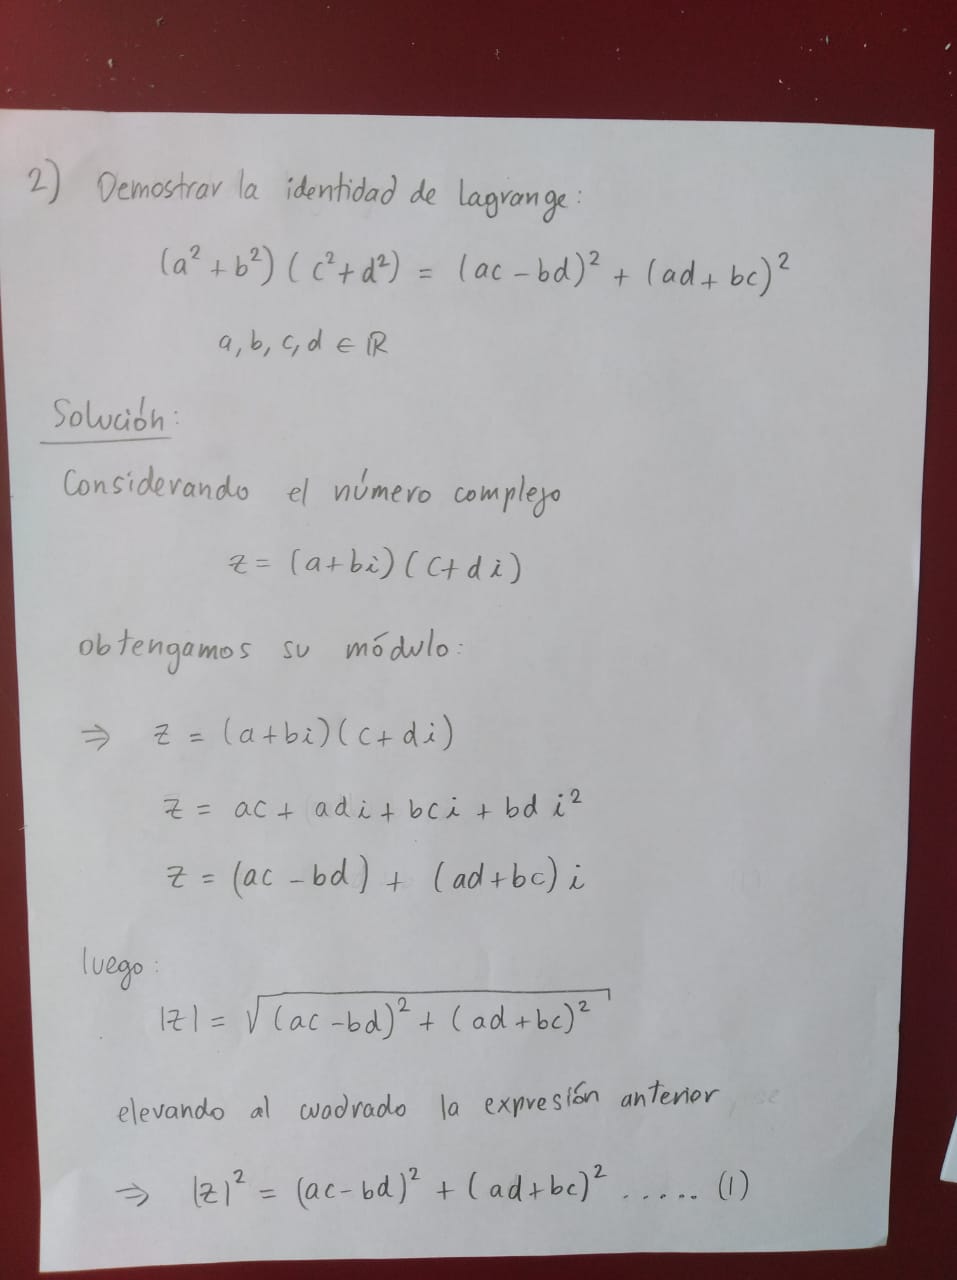 2) Demostrar la identidad de Lagrange:
(a² + b²) (c² + d²) = (ac - bd)² + (ad + bc)²
a, b, c, d ∈ ℝ
Solución:
Considerando el número complejo
z = (a + bi) (c + di)
obtengamos su módulo:
⇒ z = (a + bi) (c + di)
z = ac + adi + bci + bd i²
z = (ac - bd) + (ad + bc) i
luego:
|z| = √((ac - bd)² + (ad + bc)²)
elevando al cuadrado la expresión anterior
⇒ |z|² = (ac - bd)² + (ad + bc)² ..... (1)